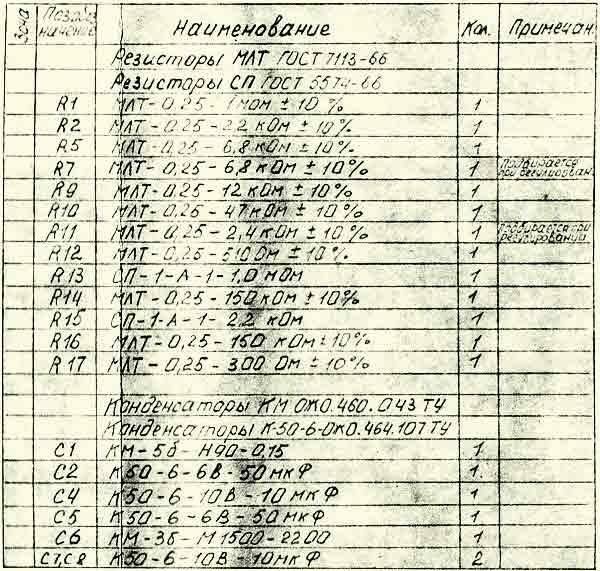 Зона Позобозначение Наименование Кол. Примечан.
Резисторы МЛТ ГОСТ 7113-66
Резисторы СП ГОСТ 5574-66
R1 МЛТ-0,25-1мом ± 10 % 1
R2 МЛТ-0,25-22 кОм ± 10% 1
R5 МЛТ-0,25-6,8 кОм ± 10% 1
R7 МЛТ-0,25-6,8 кОм ± 10% 1 Подбирается
при регулирован.
R9 МЛТ-0,25-12 кОм ± 10% 1
R10 МЛТ-0,25-47 кОм ± 10% 1
R11 МЛТ-0,25-2,4 кОм ± 10% 1 Подбирается при
регулировании
R12 МЛТ-0,25-510 Ом ± 10% 1
R13 СП-1-А-1-1,0 мОм 1
R14 МЛТ-0,25-150 кОм ± 10% 1
R15 СП-1-А-1-2,2 кОм 1
R16 МЛТ-0,25-150 кОм ± 10% 1
R17 МЛТ-0,25-300 Ом ± 10% 1
Конденсаторы КМ ОЖО.460.043 ТУ
Конденсаторы К-50-6-ОЖО.464.107ТУ
C1 КМ-5б-Н90-0,15 1
C2 К50-6-6В-50мкФ 1.
C4 К50-6-10В-10мкФ 1
C5 К50-6-6В-50мкФ 1
C6 КМ-3б-М1500-2200 1
C7,C8 К50-6-10В-10мкФ 2